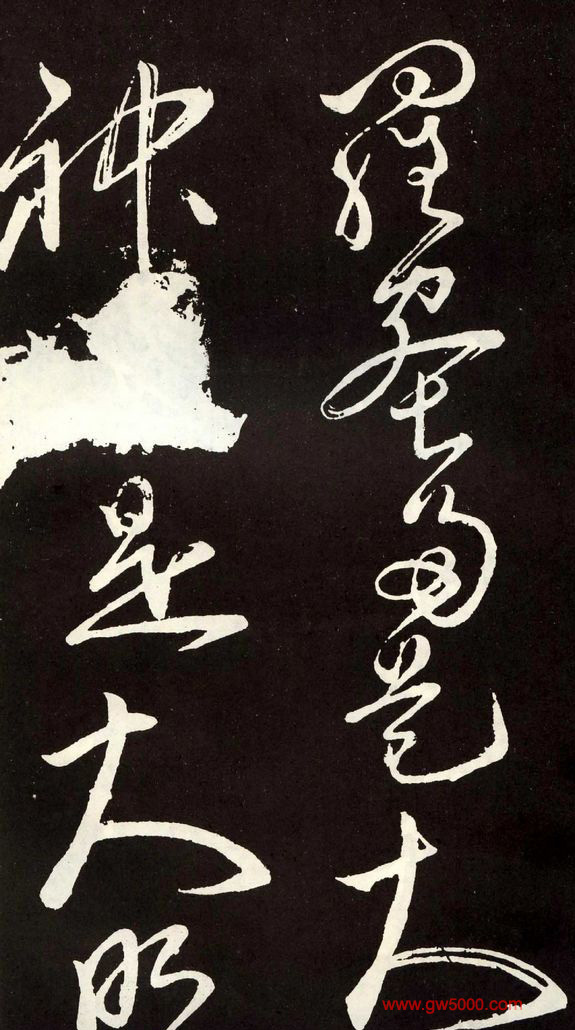 羅蜜多是大
神是大明
www.gw5000.com